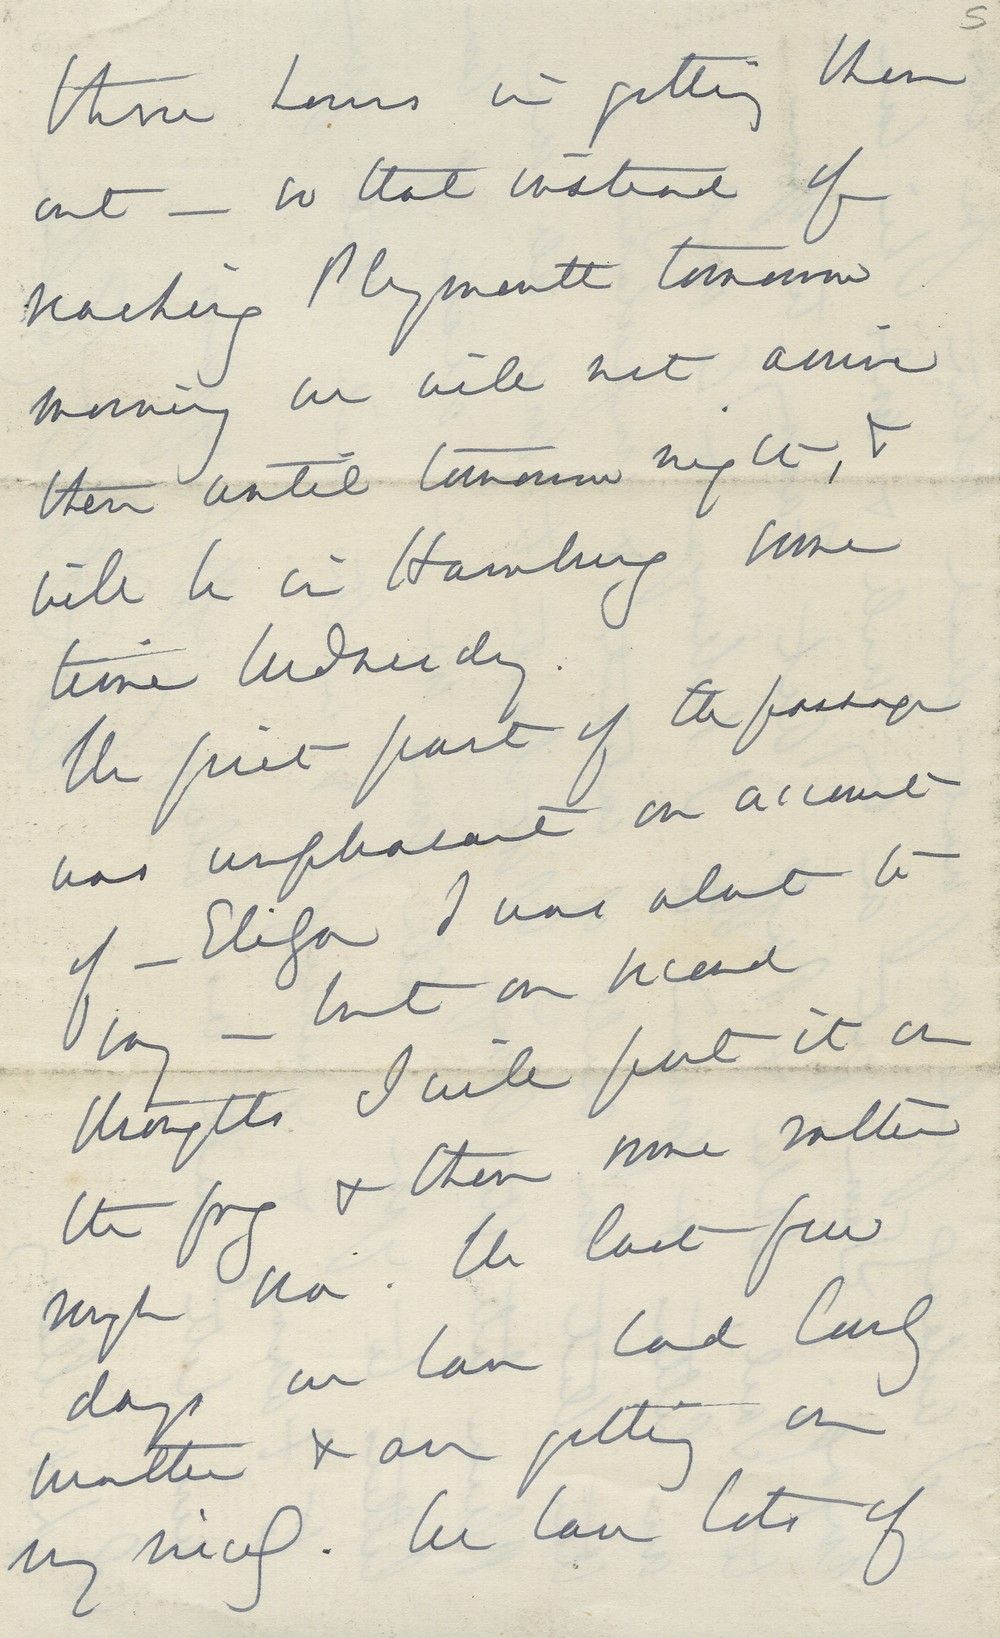 5
three hours in getting them
out — so that instead of
reaching Plymouth tomorrow
morning we will not arrive
there until tomorrow night, &
will be in Hamburg some
time Wednesday.
The first part of the passage
was unpleasant on account
of — Eliza I was about to
say — but on second
thoughts I will put it on
the fog & then some rather
rough sea. The last few
days we have had lovely
weather & are getting on
very nicely. We have lots of